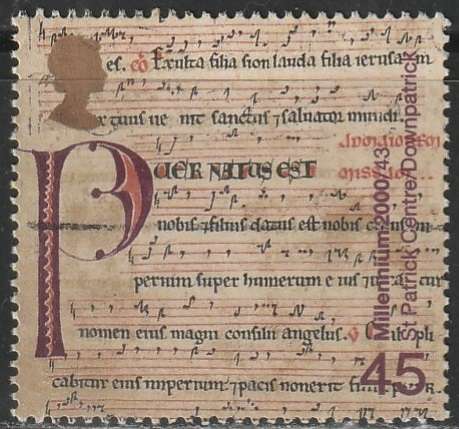 es. co Exulta filia sion lauda filia ierusalem
x tuus ue nit sanctus ⁊ saluator mundi.
PUER NATUS EST
nobis ⁊ filius datus est nobis cuius im
perium super humerum e ius ⁊ uocabitur
nomen eius magni consilii angelus.
cabitur eius imperium ⁊ pacis non erit finis
Millennium 2000/43
St Patrick Centre/Downpatrick
45